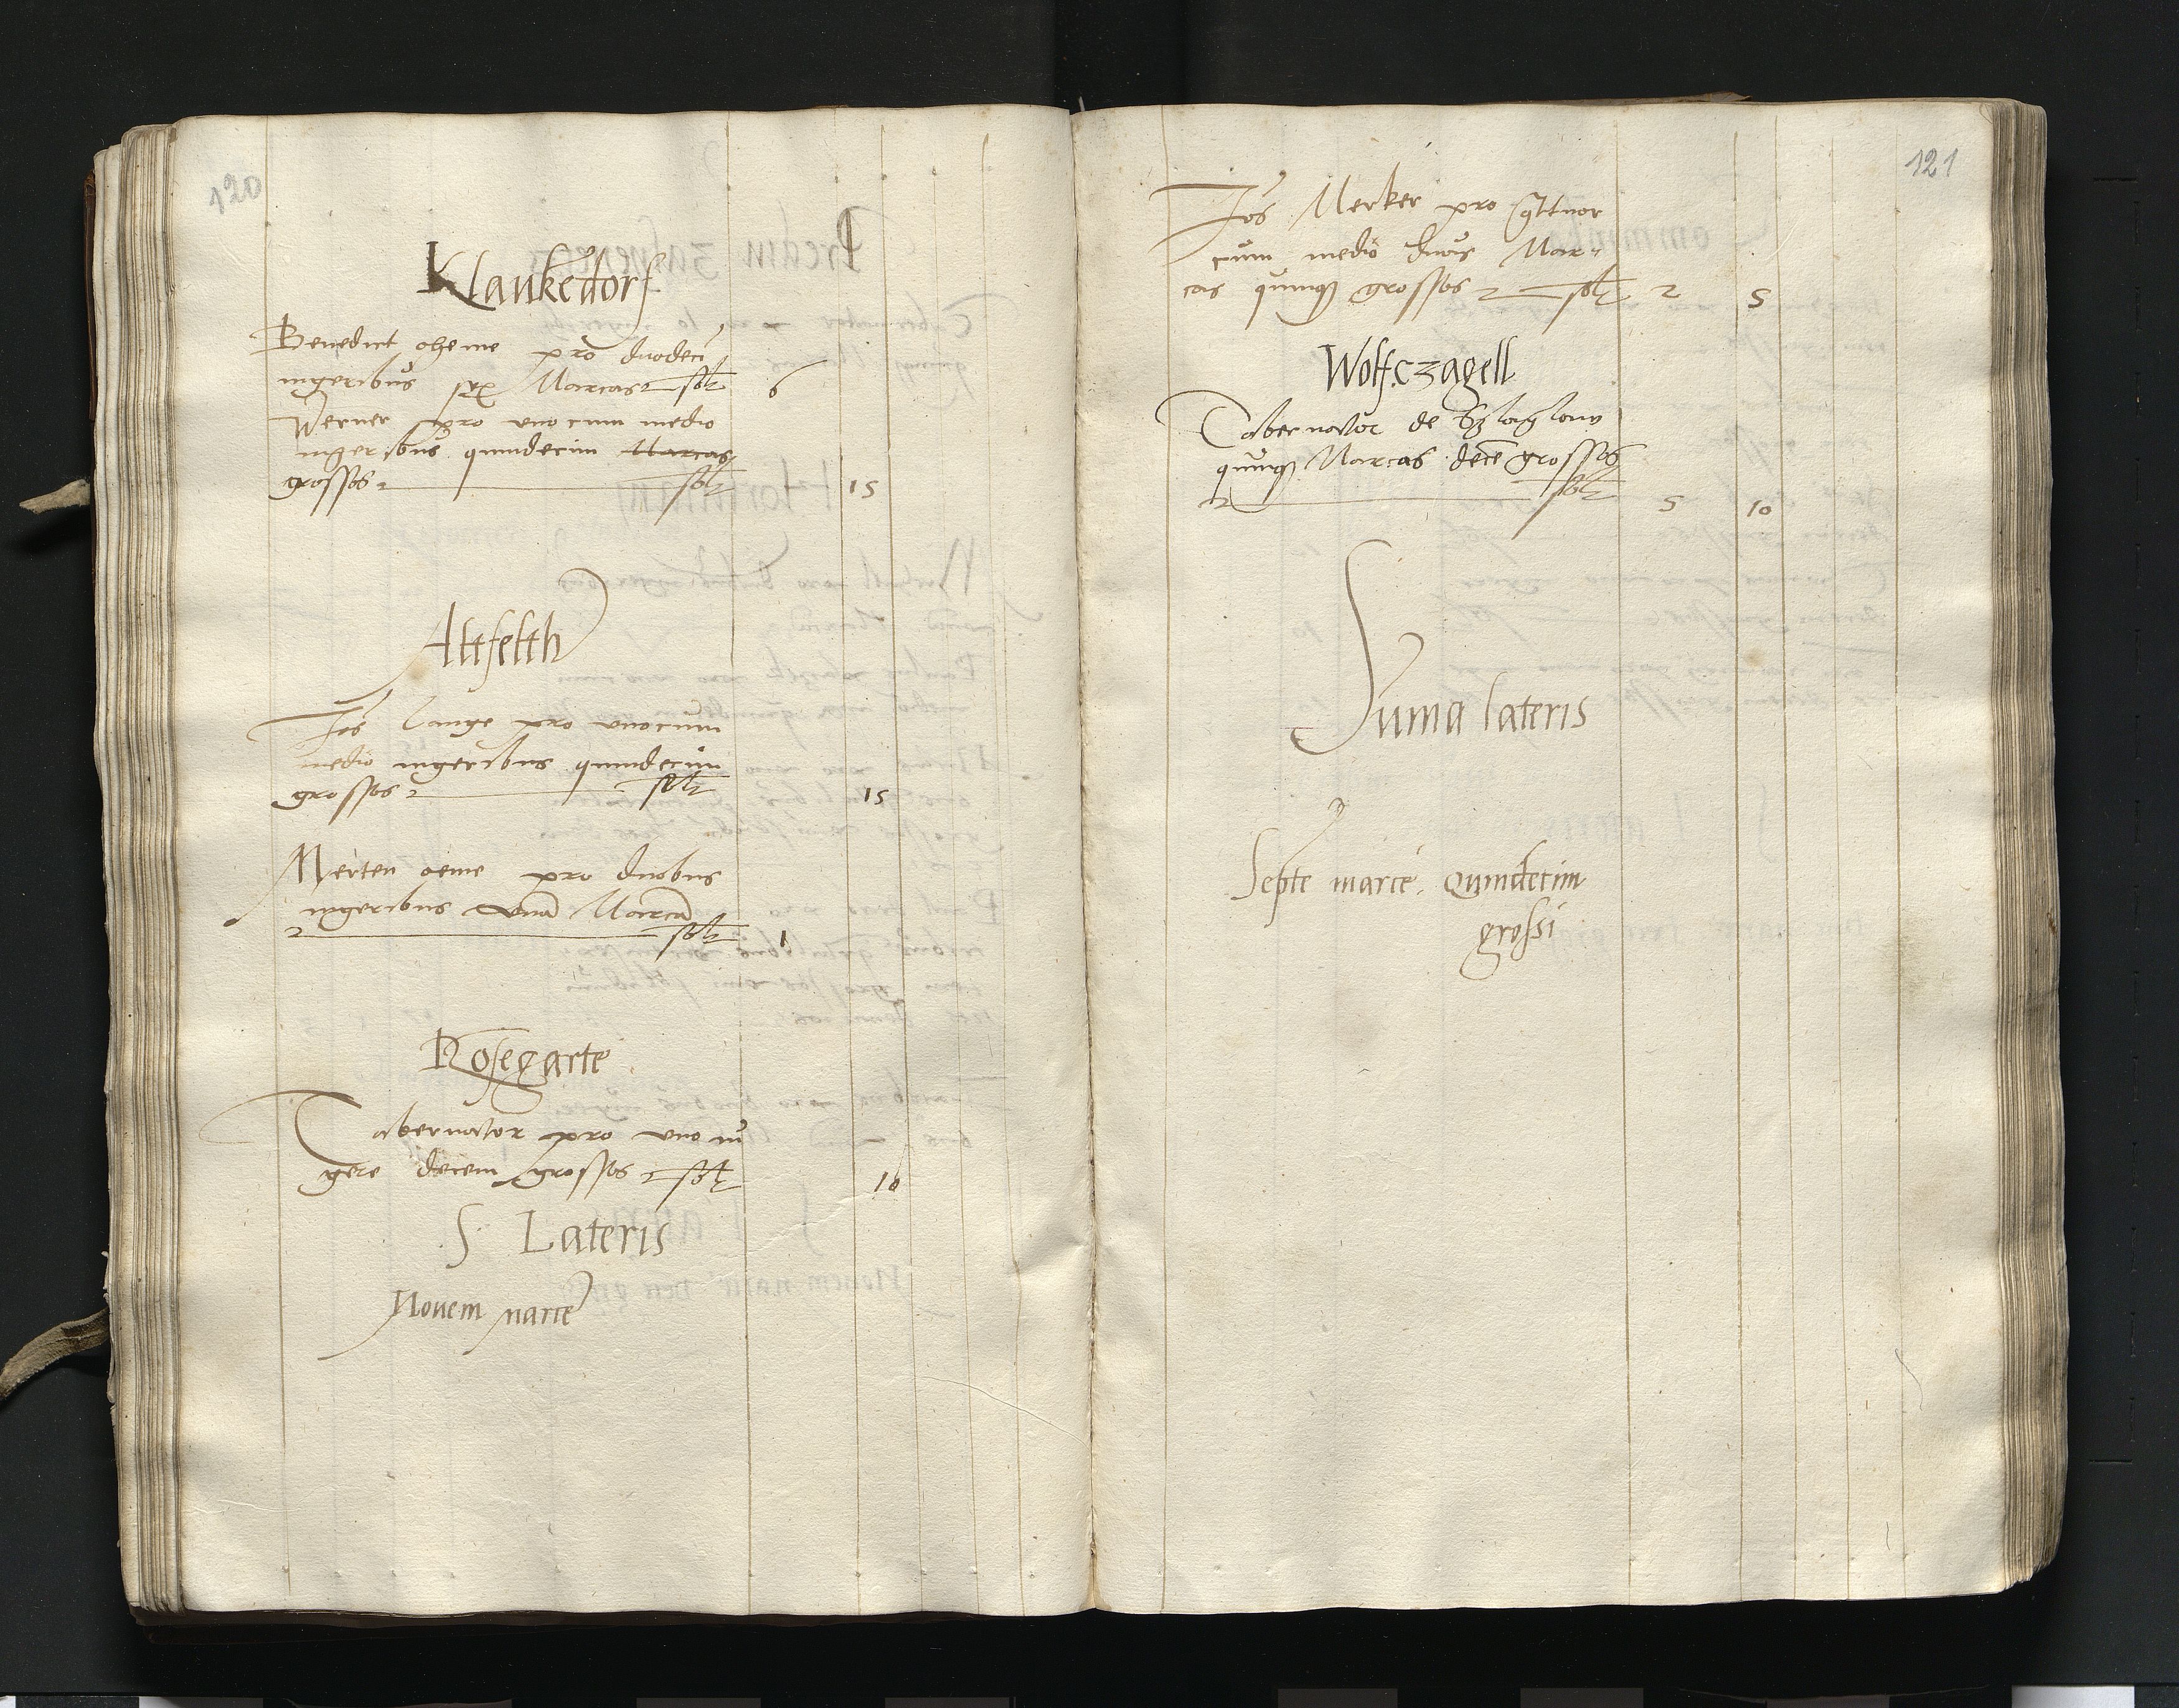 120
Klankedorf
Benedict oheme pro duodeci
iugeribus sex Marcas solt 6
Werner pro vno cum medio
iugeribus quindecim Marcas
grossos solt 15
Altfelth
Jos Lange pro vno cum
medio iugeribus quindecim
grossos solt 15
Merten oeme pro duobus
iugeribus vna Marca
solt 1
Rosegarte
Tabernator pro vno iu
gere decem grossos solt 10
S Lateris
Nouem marce
121
Jos Merker pro qttuor
cum medio duas Mar-
cas quinq grossos solt 2 5
Wolfczagell
Tabernator de
quinq Marcas dece grossos
solt 5 10
Suma lateris
Septe marce quindecim
grossi